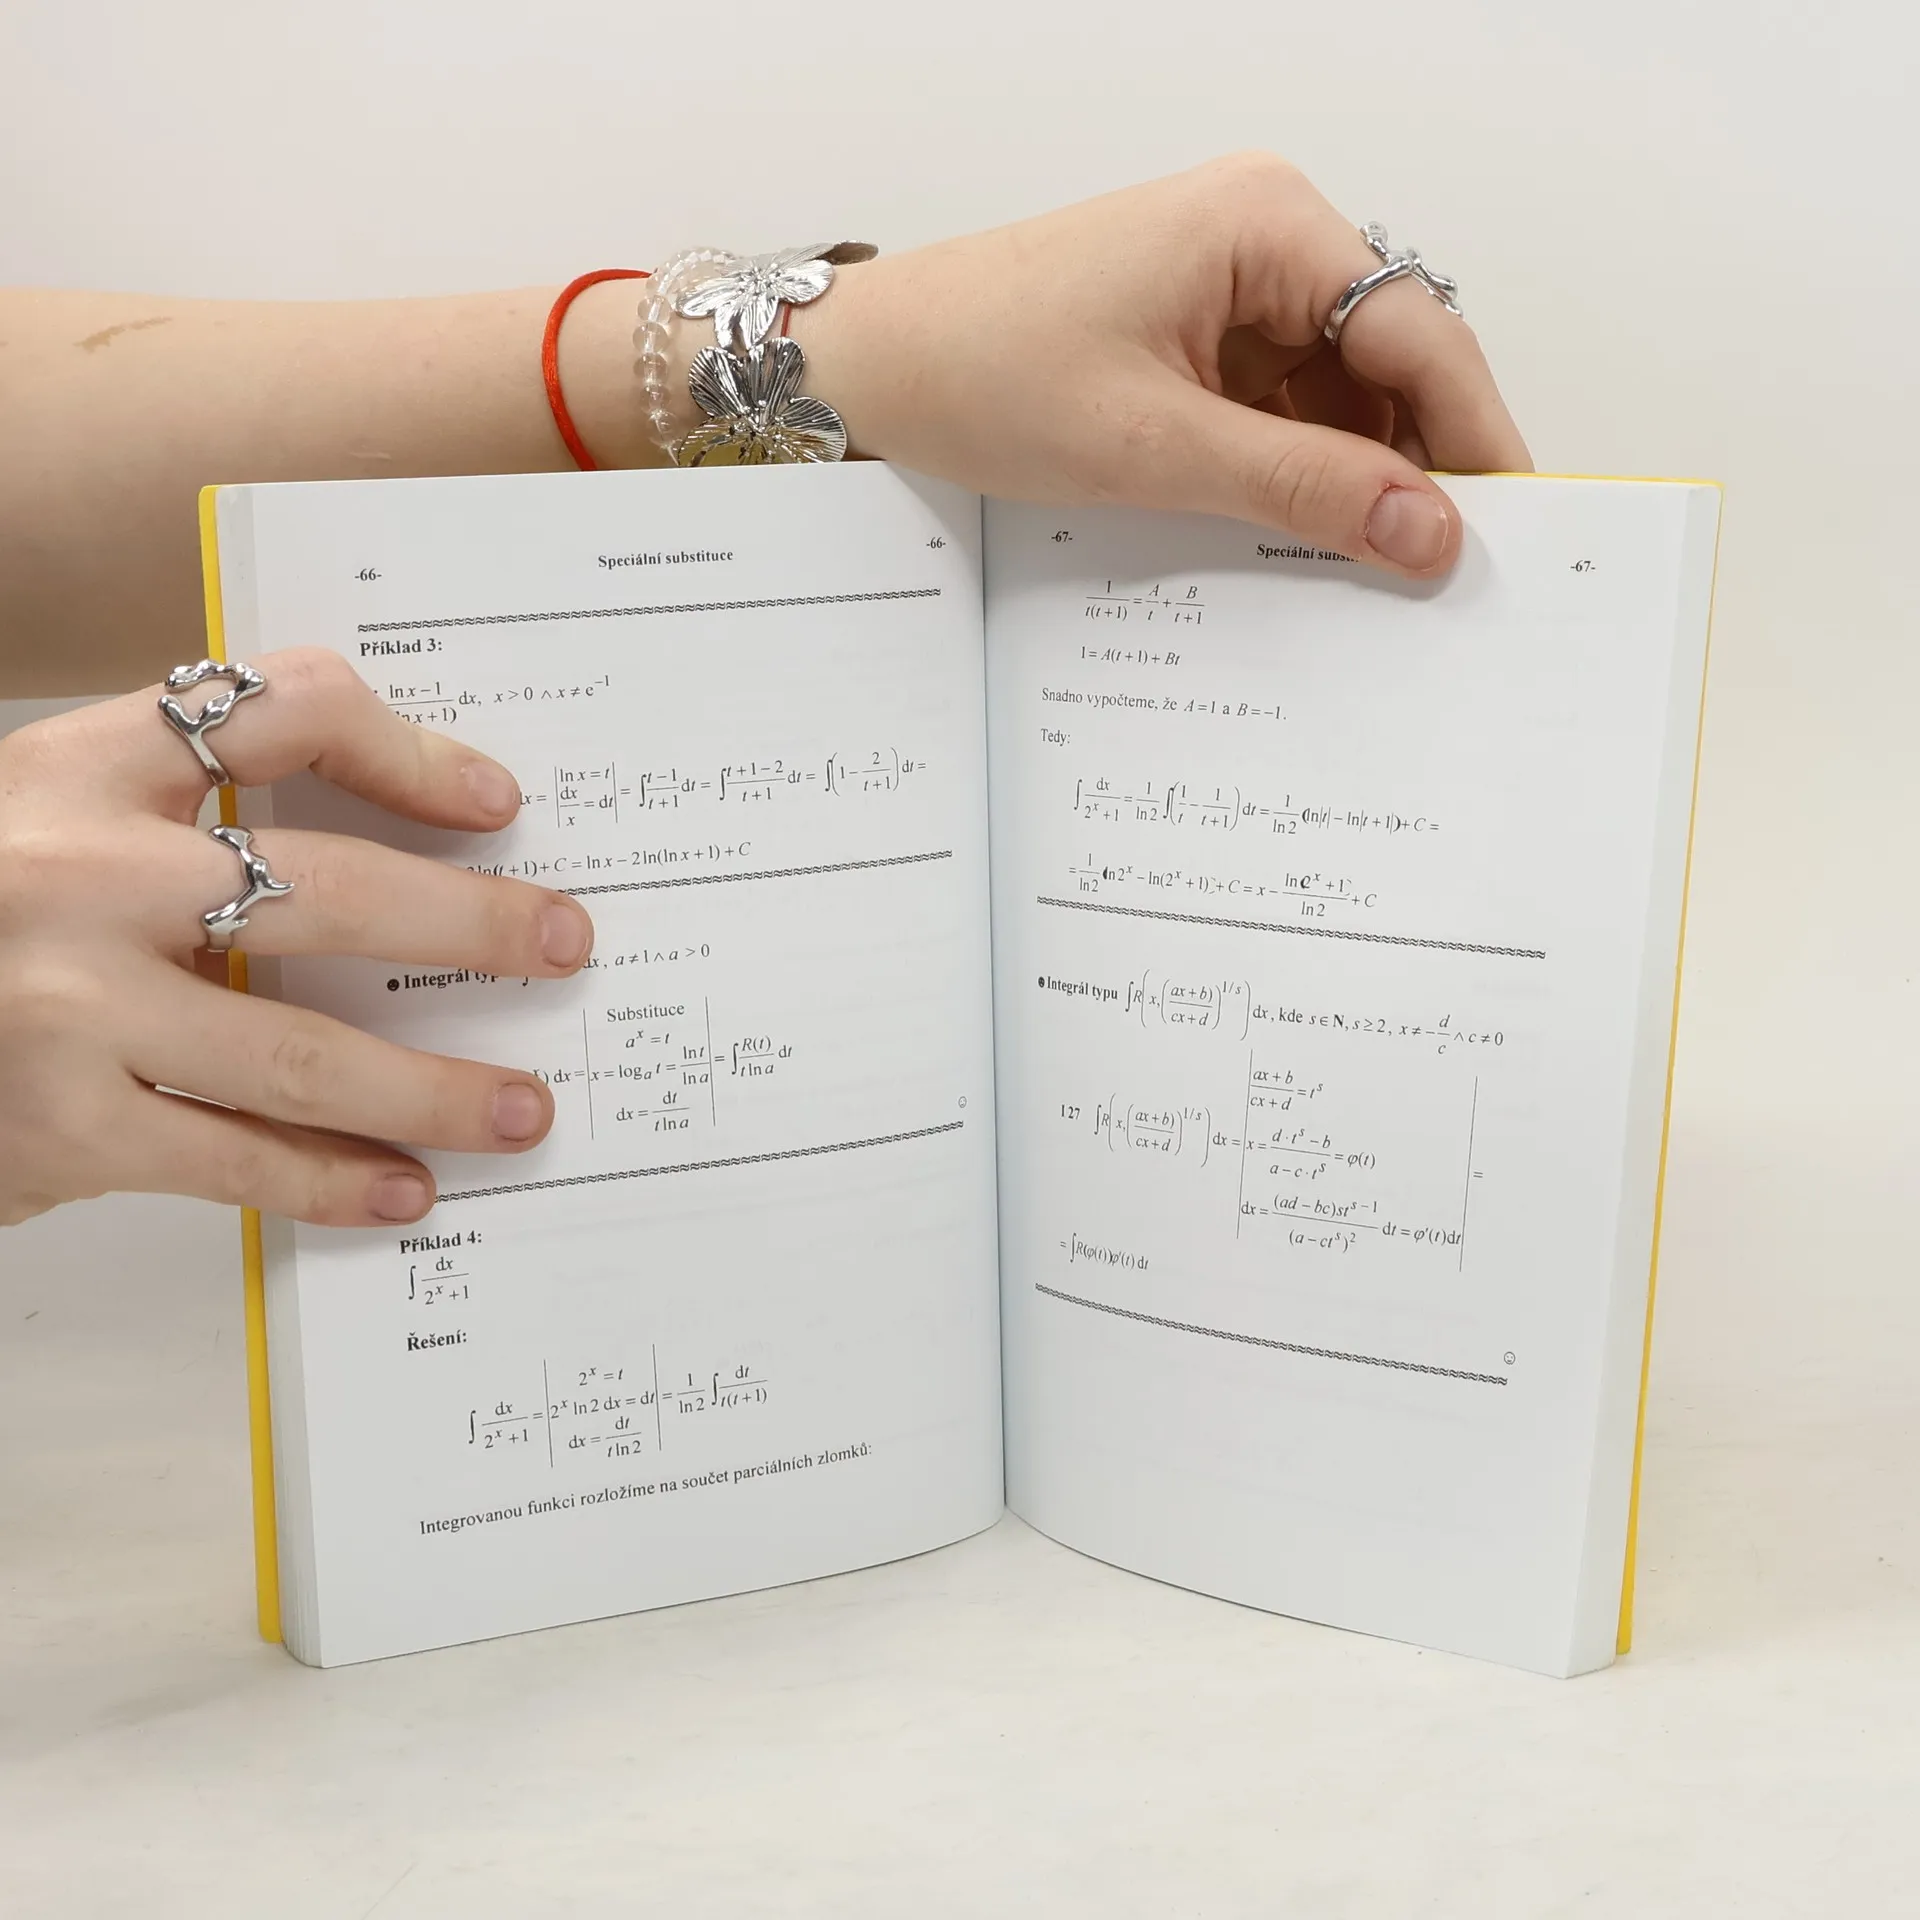 -66- Speciální substituce -66-
Příklad 3:
ln x − 1
dx, x > 0 ∧ x ≠ e^−1
x + 1)
x = | ln x = t, dx/x = dt | = ∫ (t−1)/(t+1) dt = ∫ (t+1−2)/(t+1) dt = ∫ (1 − 2/(t+1)) dt =
(t + 1) + C = ln x − 2ln(ln x + 1) + C
☻ Integrál
dx, a ≠ 1 ∧ a > 0
) dx = | Substituce, a^x = t, x = log_a t = ln t/ln a, dx = dt/(t ln a) | = ∫ R(t)/(t ln a) dt
☺
Příklad 4:
∫ dx/(2^x + 1)
Řešení:
∫ dx/(2^x + 1) = | 2^x = t, 2^x ln 2 dx = dt, dx = dt/(t ln 2) | = 1/ln 2 ∫ dt/(t(t + 1))
Integrovanou funkci rozložíme na součet parciálních zlomků:
-67- Speciální -67-
1/(t(t + 1)) = A/t + B/(t + 1)
1 = A(t + 1) + Bt
Snadno vypočteme, že A = 1 a B = −1.
Tedy:
∫ dx/(2^x + 1) = 1/ln 2 ∫ (1/t − 1/(t + 1)) dt = 1/ln 2 (ln|t| − ln|t + 1|) + C =
= 1/ln 2 (ln 2^x − ln(2^x + 1)) + C = x − ln(2^x + 1)/ln 2 + C
☻ Integrál typu ∫ R(x, ((ax + b)/(cx + d))^1/s) dx, kde s ∈ N, s ≥ 2, x ≠ −d/c ∧ c ≠ 0
127 ∫ R(x, ((ax + b)/(cx + d))^1/s) dx = | (ax + b)/(cx + d) = t^s, x = (d · t^s − b)/(a − c · t^s) = φ(t), dx = (ad − bc)st^s−1/(a − ct^s)^2 dt = φ′(t)dt | =
= ∫ R(φ(t))φ′(t) dt
☺